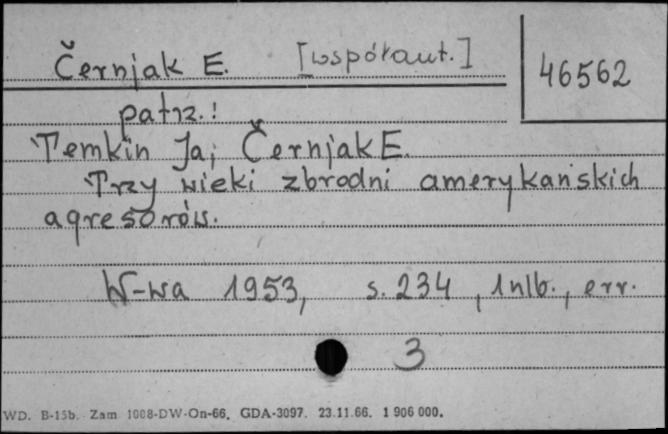 Černjak E. [współaut.]
46562
patrz.:
Temkin Ja; Černjak E.
Trzy wieki zbrodni amerykańskich
agresorów.
W-wa 1953, s. 234, 1 nlb., err.
3
WD. B-15b. Zam 1008-DW-On-66. GDA-3097. 23.11.66. 1 906 000.